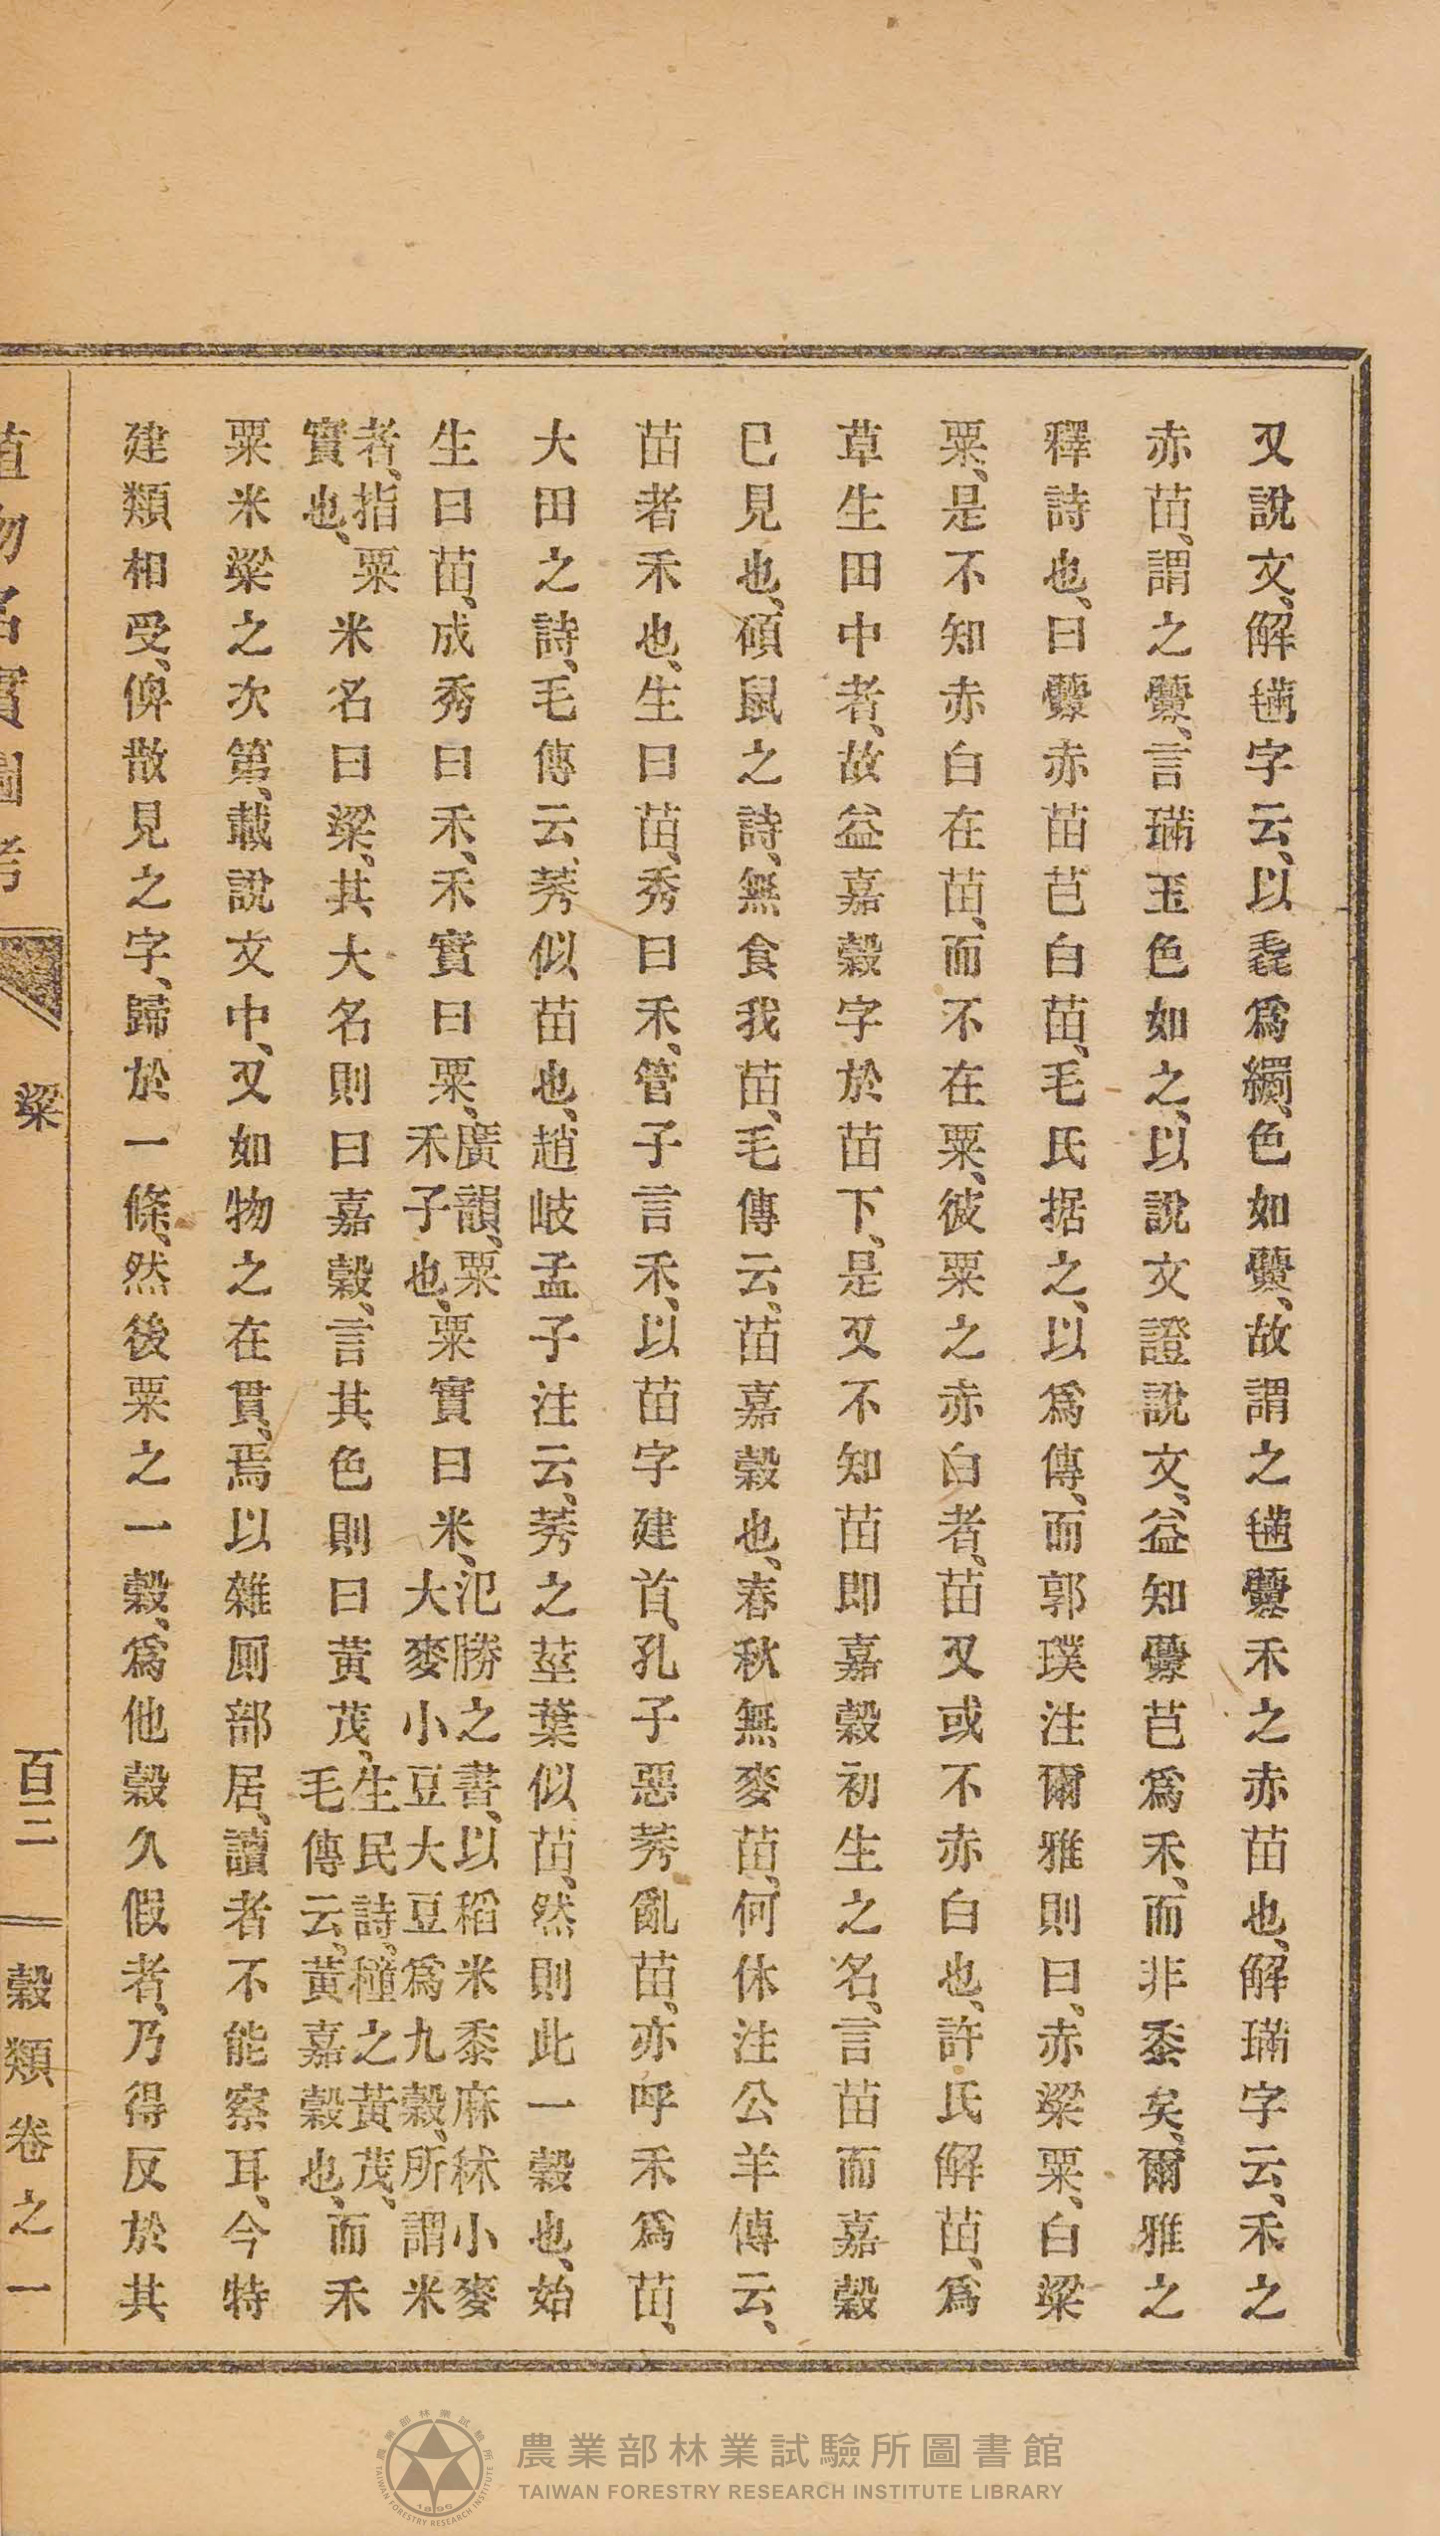 又說文、解𣯩字云、以毳爲繝、色如虋、故謂之𣯩虋禾之赤苗也、解璊字云、禾之
赤苗、謂之虋、言璊玉色如之、以說文證說文、益知虋芑爲禾、而非黍矣、爾雅之
釋詩也、曰虋赤苗芑白苗、毛氏据之、以爲傳、而郭璞注爾雅則曰、赤粱粟、白粱
粟、是不知赤白在苗、而不在粟、彼粟之赤白者、苗又或不赤白也、許氏解苗、爲
草生田中者、故益嘉穀字於苗下、是又不知苗即嘉穀初生之名、言苗而嘉穀
已見也、碩鼠之詩、無食我苗、毛傳云、苗嘉穀也、春秋無麥苗、何休注公羊傳云、
苗者禾也、生曰苗、秀曰禾、管子言禾、以苗字建首、孔子惡莠亂苗、亦呼禾爲苗、
大田之詩、毛傳云、莠似苗也、趙岐孟子注云、莠之莖葉似苗、然則此一穀也、始
生曰苗、成秀曰禾、禾實曰粟、廣韻、粟禾子也、粟實曰米、氾勝之書、以稻米黍麻秫小麥大麥小豆大豆爲九穀、所謂米
者、指粟實也、米名曰粱、其大名則曰嘉穀、言其色則曰黃茂、生民詩、種之黃茂、毛傳云、黃嘉穀也、而禾
粟米粱之次第、載說文中、又如物之在貫、焉以雜厠部居、讀者不能察耳、今特
建類相受、俾散見之字、歸於一條、然後粟之一穀、爲他穀久假者、乃得反於其
植物名實圖考 粱 百二 穀類卷之一
農業部林業試驗所圖書館
TAIWAN FORESTRY RESEARCH INSTITUTE LIBRARY
農業部林業試驗所
TAIWAN FORESTRY RESEARCH INSTITUTE
1896